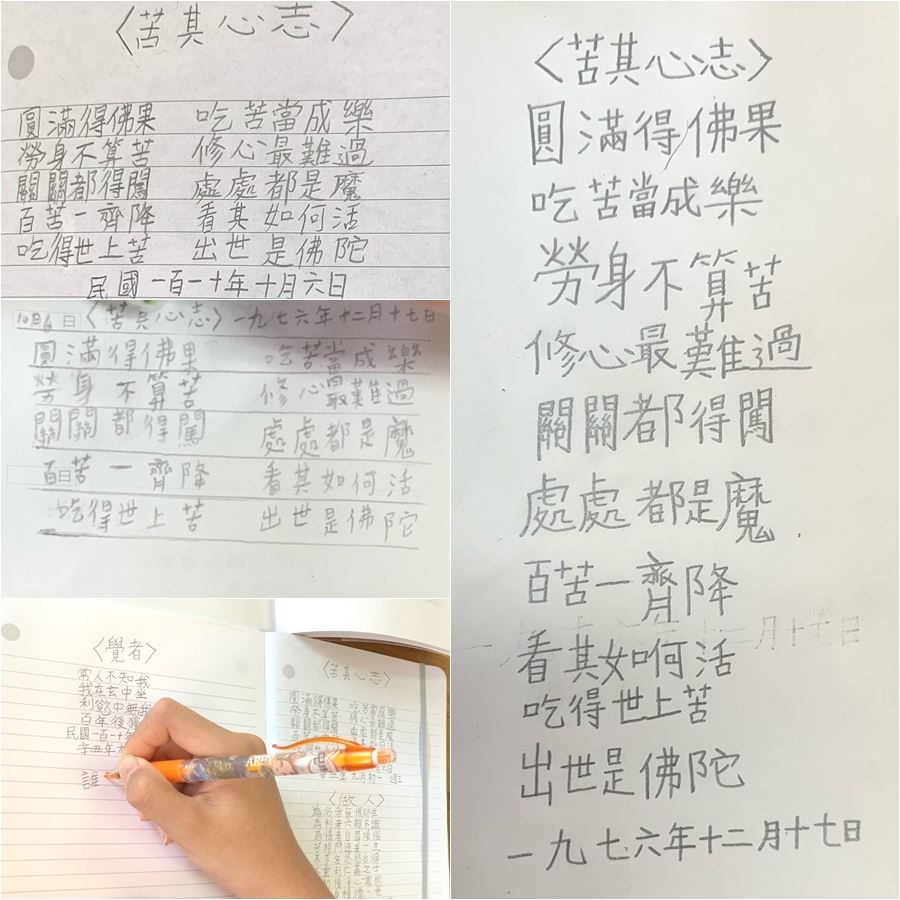 〈苦其心志〉
圓滿得佛果 吃苦當成樂
勞身不算苦 修心最難過
關關都得闖 處處都是魔
百苦一齊降 看其如何活
吃得世上苦 出世是佛陀
民國一百一十年十月六日
10月6日〈苦其心志〉一九七六年十二月十七日
圓滿得佛果 吃苦當成樂
勞身不算苦 修心最難過
關關都得闖 處處都是魔
百苦一齊降 看其如何活
吃得世上苦 出世是佛陀
〈覺者〉
常人不知我
我在玄中坐
利慾中無我
百年後
民國一百一十年
辛丑年九
誰
〈苦其心志〉
圓滿得佛果 吃苦當成樂
勞身不算苦 修心最難過
關關都得闖
年九月初一
〈做人〉
〈苦其心志〉
圓滿得佛果
吃苦當成樂
勞身不算苦
修心最難過
關關都得闖
處處都是魔
百苦一齊降
看其如何活
吃得世上苦
出世是佛陀
一九七六年十二月十七日